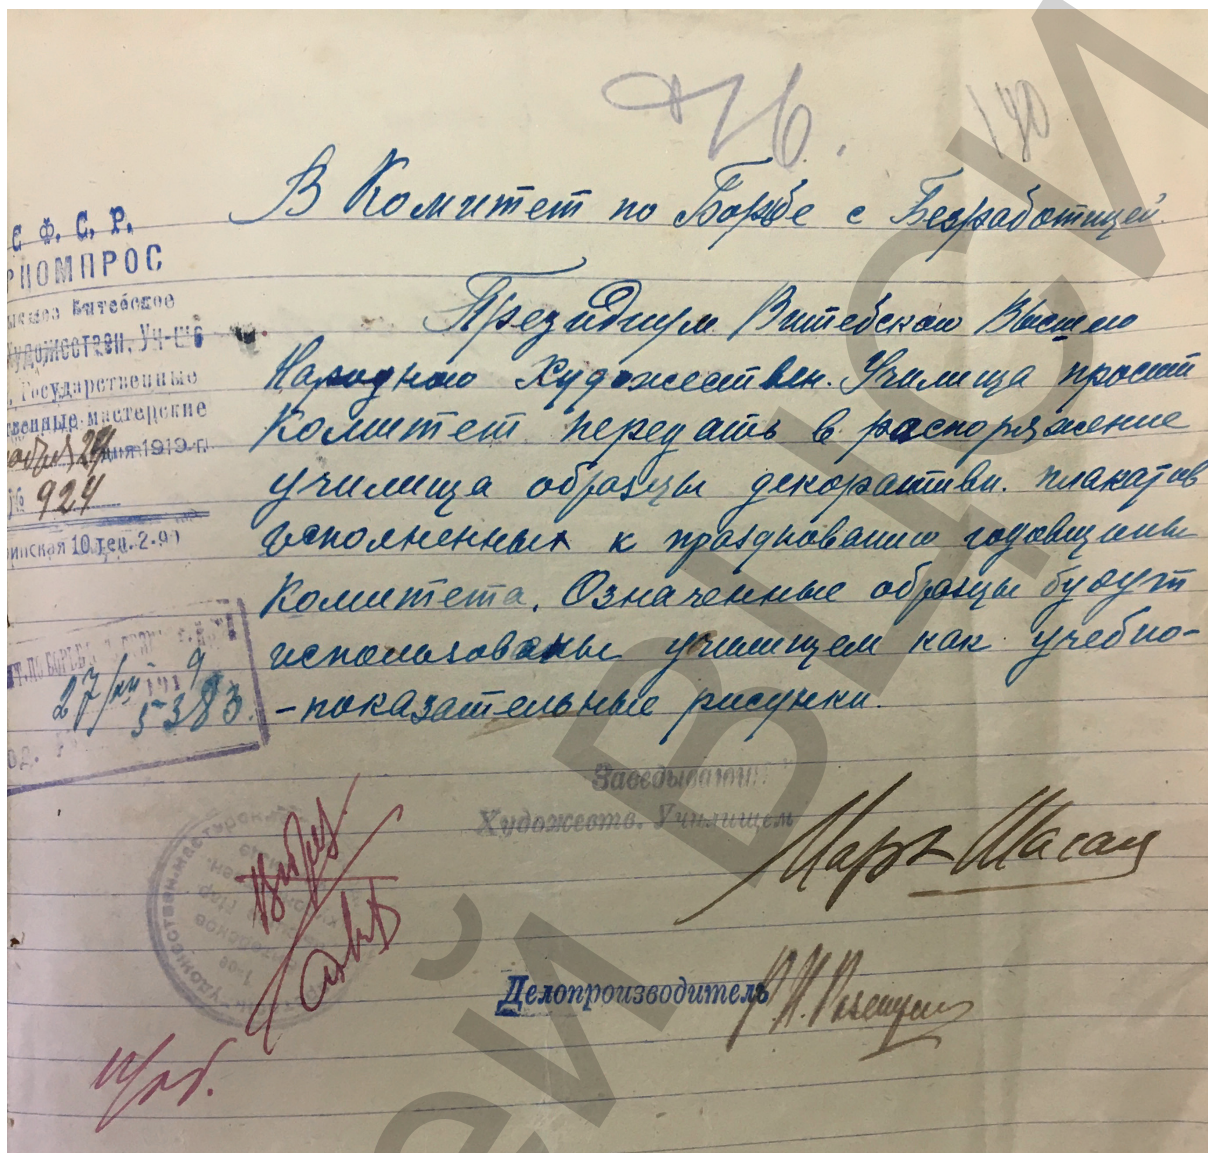 76.
180
В Комитет по Борьбе с Безработицей.
С. Ф. С. Р.
НАРКОМПРОС
Высшее Витебское
Художествен. Уч-ще
Государственные
художественные мастерские
ноября 24 дня 1919 г.
№ 924
10 тел. 2-9
Президиум Витебского Высшего
Народного Художествен. Училища просит
Комитет передать в распоряжение
училища образцы декоративн. плакатов
исполненных к празднованию годовщины
Комитета. Означенные образцы будут
использованы училищем как учебно-
-показательные рисунки.
27/XII 1919
5383
Заведывающий
Художеств. Училищем
Марк Шагал
Делопроизводитель